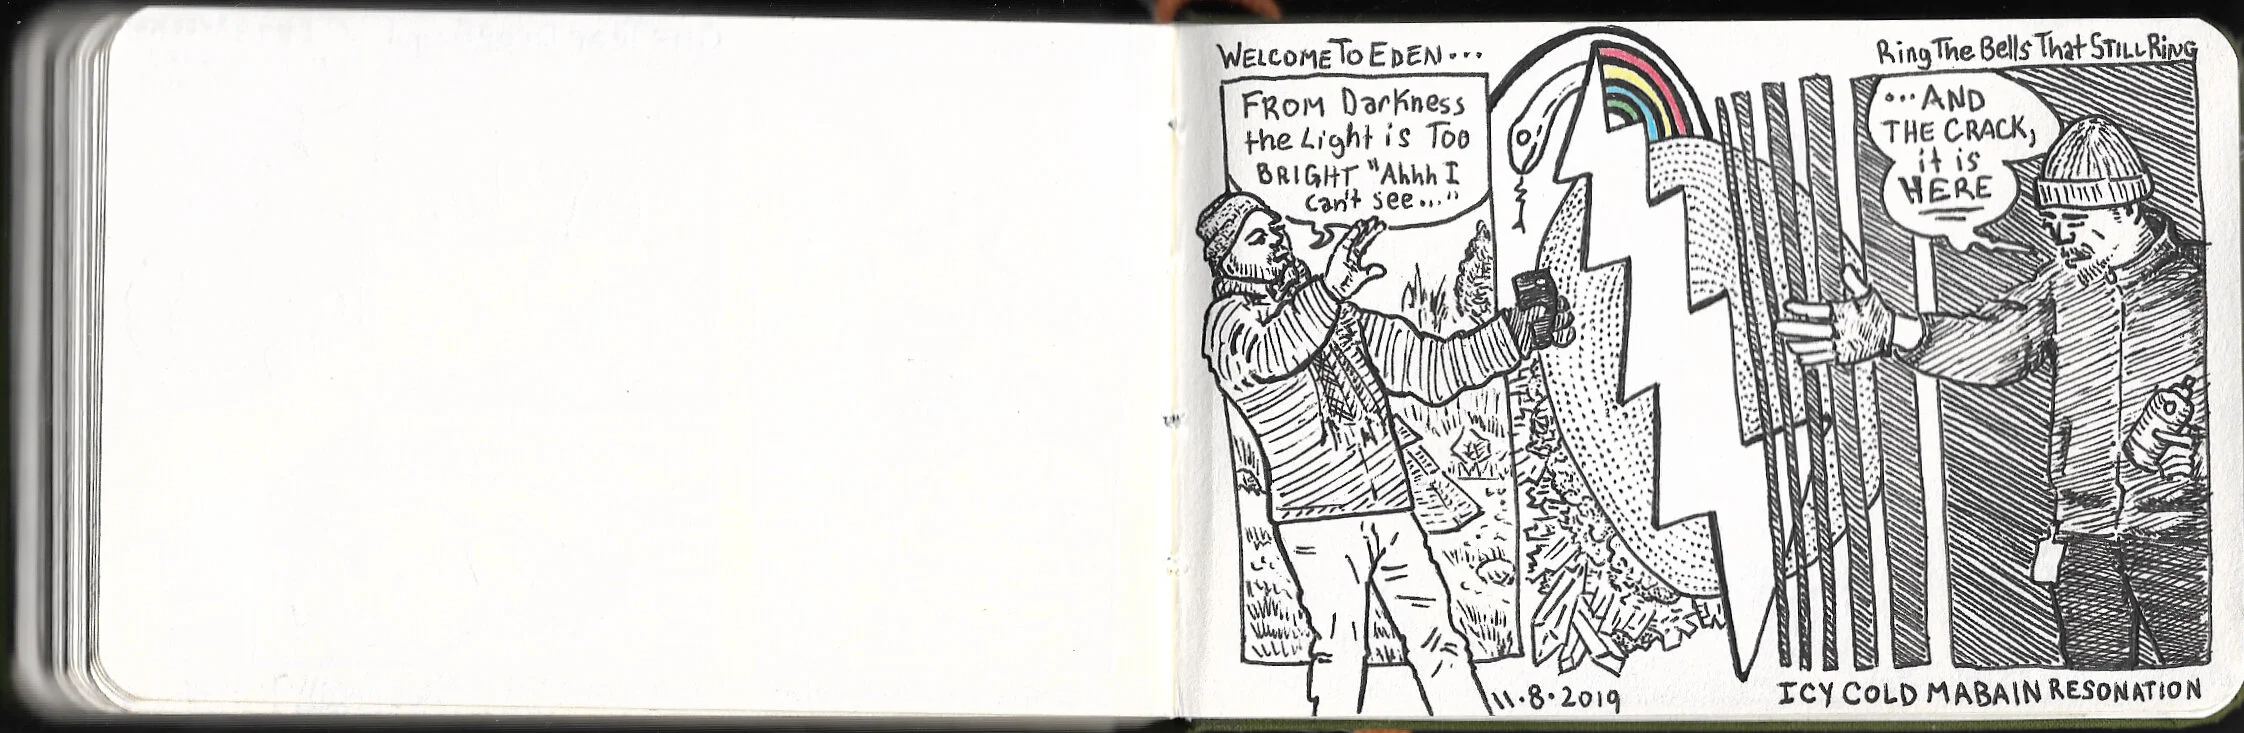 WELCOME TO EDEN...
FROM Darkness
the Light is Too
BRIGHT "Ahhh I
can't see..."
Ring The Bells That STILL RING
...AND
THE CRACK,
it is
HERE
11·8·2019
ICY COLD MABAIN RESONATION